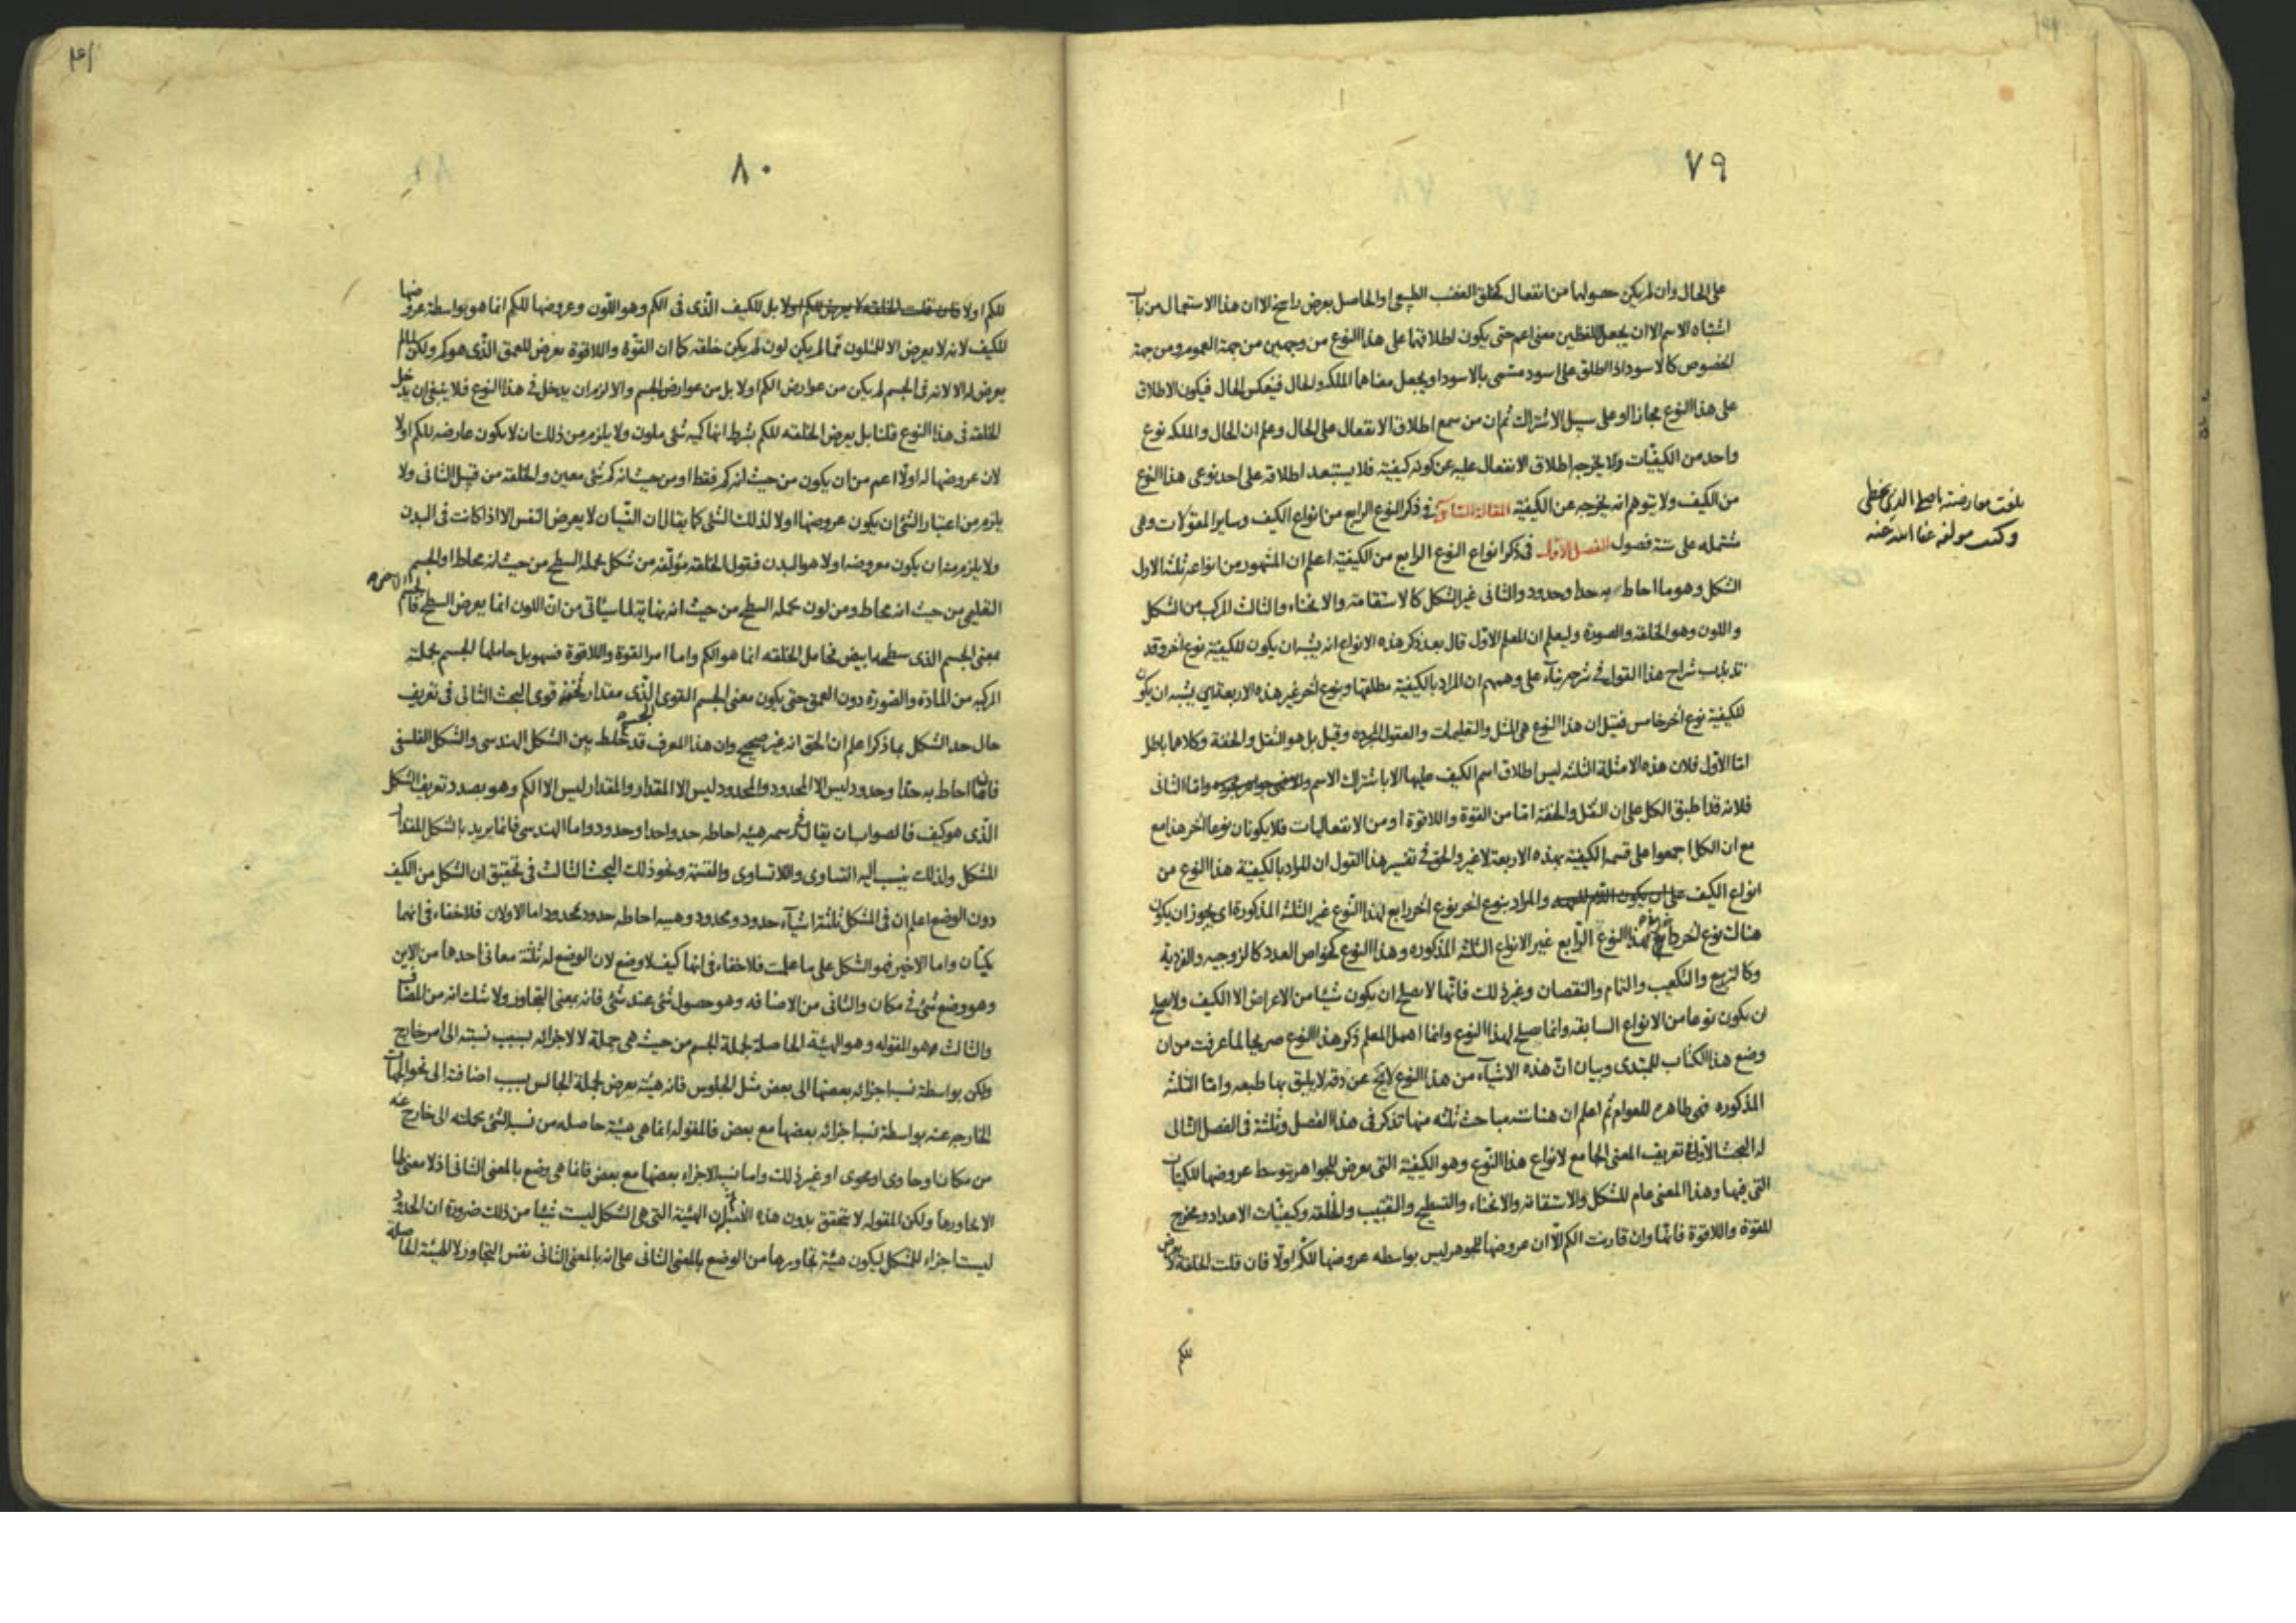 ٧٩
على الحال وان لم يكن حصولها من انفعال كخلق الغضب الطبيعى او الحاصل بعرض راسخ الا ان هذا الاستعمال من باب
اشتباه الاسم الا ان يجعل للفظين معنى اعم حتى يكون اطلاقهما على هذا النوع من وجهين من جهة العموم ومن جهة
الخصوص كالاسود اذا اطلق على اسود مسمى بالاسود او يجعل معناهما الملكه والحال فينعكس الحال فيكون الاطلاق
على هذا النوع مجازا او على سبيل الاشتراك ثم ان من سمع اطلاق الانفعال على الحال وعلم ان الحال والملكه نوع
واحد من الكيفيات ولا يخرجه اطلاق الانفعال عليه عن كونه كيفيته فلا يستبعد اطلاقه على احد نوعى هذا النوع
من الكيف ولا يتوهم انه يخرجه عن الكيفية المقالة الثانية فى ذكر النوع الرابع من انواع الكيف وساير المقولات وهى
مشتمله على ستة فصول الفصل الاول فى ذكر انواع النوع الرابع من الكيفية اعلم ان المشهور من انواعه ثلثة الاول
الشكل وهو ما احاط به حد او حدود والثانى غير الشكل كالاستقامة والانحناء والثالث المركب من الشكل
واللون وهو الخلقه والصورة وليعلم ان المعلم الاول قال بعد ذكر هذه الانواع انه يشبه ان يكون للكيفية نوع اخر وقد
تذبذب شراح هذا القول فى شرحه بناء على وهمهم ان المراد بالكيفية مطلقها وبنوع اخر غير هذه الاربعة اى يشبه ان يكون
للكيفية نوع اخر خامس فقيل ان هذا النوع هى المثل والتعليمات والعقول المجرده وقيل بل هو الثقل والخفة وكلاهما باطل
اما الاول فلان هذه الامثلة الثلثة ليس اطلاق اسم الكيف عليها الا باشتراك الاسم واما الثانى
فلانه قد اطبق الكل على ان الثقل والخفة اما من القوة واللاقوة او من الانفعاليات فلا يكونان نوعا اخر هذا مع
مع ان الكل اجمعوا على قسمة الكيفية بهذه الاربعة لا غير والحق فى تفسير هذا القول ان المراد بالكيفية هذا النوع من
انواع الكيف والمراد بنوع اخر نوع اخر رابع لهذا النوع غير الثلثة المذكورة اى يجوز ان يكون
هناك نوع اخر لهذا النوع الرابع غير الانواع الثلثة المذكوره وهذا النوع كخواص العدد كالزوجيه والفردية
وكالتربيع والتكعيب والتمام والنقصان وغير ذلك فانها لا يصلح ان يكون شيئا من الاعراض الا الكيف ولا يصلح
ان يكون نوعا من الانواع السابقه وانما صلح لهذا النوع وانما اهمل المعلم ذكر هذا النوع صريحا لما عرفت من ان
وضع هذا الكتاب للمبتدى وبيان ان هذه الاشياء من هذا النوع لا يخ عن دقه لا يليق بها طبعه واما الثلثة
المذكوره فهى ظاهره للعوام ثم اعلم ان هناك مباحث ثلثه منها تذكر فى هذا الفصل وثلثة فى الفصل التالى
له البحث الاول فى تعريف المعنى الجامع لانواع هذا النوع وهو الكيفية التى يعرض للجواهر بتوسط عروضها للكميات
التى فيها وهذا المعنى عام للشكل والاستقامة والانحناء والتسطيح والتقبيب والخلقه وكيفيات الاعداد ويخرج
القوة واللاقوة فانها وان قارنت الكم الا ان عروضها للجوهر ليس بواسطه عروضها للكم اولا فان قلت الخلقة لا يعرض
للكم
بلغت معارضته باصله الذى بخطى
وكتب مولفه عفا الله عنه
٨٠
للكم اولا فان قلت الخلقه لا يعرض للكم اولا بل للكيف الذى فى الكم وهو اللون وعروضها للكم انما هو بواسطة عروضها
للكيف لانه لا يعرض الا للملون فما لم يكن لون لم يكن خلقه كما ان القوة واللاقوة يعرض للعمق الذى هو كم ولكن لما لم
يعرض له الا لانه فى الجسم لم يكن من عوارض الكم اولا بل من عوارض الجسم والا لزم ان يدخل فى هذا النوع فلا ينبغى ان يدخل
الخلقه فى هذا النوع قلنا بل يعرض الخلقه للكم بشرط انها كميه شئ ملون ولا يلزم من ذلك ان لا يكون عارضه للكم اولا
لان عروضها له اولا اعم من ان يكون من حيث انه كم فقط او من حيث انه كم شئ معين والخلقه من قبيل الثانى ولا
يلزم من اعتبار الشئ ان يكون عروضها اولا لذلك الشئ كما يقال ان النسيان لا يعرض النفس الا اذا كانت فى البدن
ولا يلزم منه ان يكون معروضه اولا هو البدن فنقول الخلقه مؤلفه من شكل يحمله السطح من حيث انه محاط او الجسم
التعليمى من حيث انه محاط ومن لون يحمله السطح من حيث انه نهاية لما سيأتى من ان اللون انما يعرض السطح فالجسم الابيض
بمعنى الجسم الذى سطحه ابيض فحامل الخلقه انما هو الكم واما امر القوة واللاقوة فسهو بل حاملها الجسم بجملته
المركبه من المادة والصورة دون العمق حتى يكون معنى الجسم القوى الذى مقدار قوى البحث الثانى فى تعريف
حال حد الشكل بما ذكر اعلم ان الحق انه غير صحيح وان هذا المعرف قد خلط بين الشكل الهندسى والشكل الفلسفى
فان ما احاط به حد او حدود ليس الا المحدود والمحدود ليس الا المقدار والمقدار ليس الا الكم وهو بصدد تعريف الشكل
الذى هو كيف فالصواب ان يقال فى رسمه هيئه احاطه حد واحد او حدود واما الهندسى فانما يريد بالشكل المقدار
المشكل ولذلك ينسب اليه التساوى واللاتساوى والقسمة ونحو ذلك البحث الثالث فى تحقيق ان الشكل من الكيف
دون الوضع اعلم ان فى المشكل ثلثة اشياء حدود ومحدود وهيئه احاطه حدود بمحدود اما الاولان فلا خفاء فى انهما
كميتان واما الاخير فهو الشكل على ما علمت فلا خفاء فى انها كيف لا وضع لان الوضع له ثلثة معانى احدها من الاين
وهو وضع شئ فى مكان والثانى من الاضافه وهو حصول شئ عند شئ فانه بمعنى التجاور ولا شك انه من المضاف
والثالث هو المقوله وهو الهيئة الحاصلة لجملة الجسم من حيث هى جملة لا لاجزائه بسبب نسبته الى امر خارج
ولكن بواسطة نسب اجزائه بعضها الى بعض مثل الجلوس فانه هيئة يعرض لجملة الجالس بسبب اضافته الى نحو الجهات
الخارجه عنه بواسطة نسب اجزائه بعضها مع بعض فالمقوله انما هى هيئة حاصله من نسب الشئ بجملته الى خارج عنه
من مكان او حاوى او محوى او غير ذلك واما نسب الاجزاء بعضها مع بعض فانما هى وضع بالمعنى الثانى اذ لا معنى لها
الا تجاورها ولكن المقوله لا يتحقق بدون هذه الهيئة التى هى الشكل ليست شيئا من ذلك ضرورة ان الحدود
ليست اجزاء للمشكل ليكون هيئة تجاورها من الوضع بالمعنى الثانى على انه بالمعنى الثانى نفس التجاور لا الهيئة الحاصلة